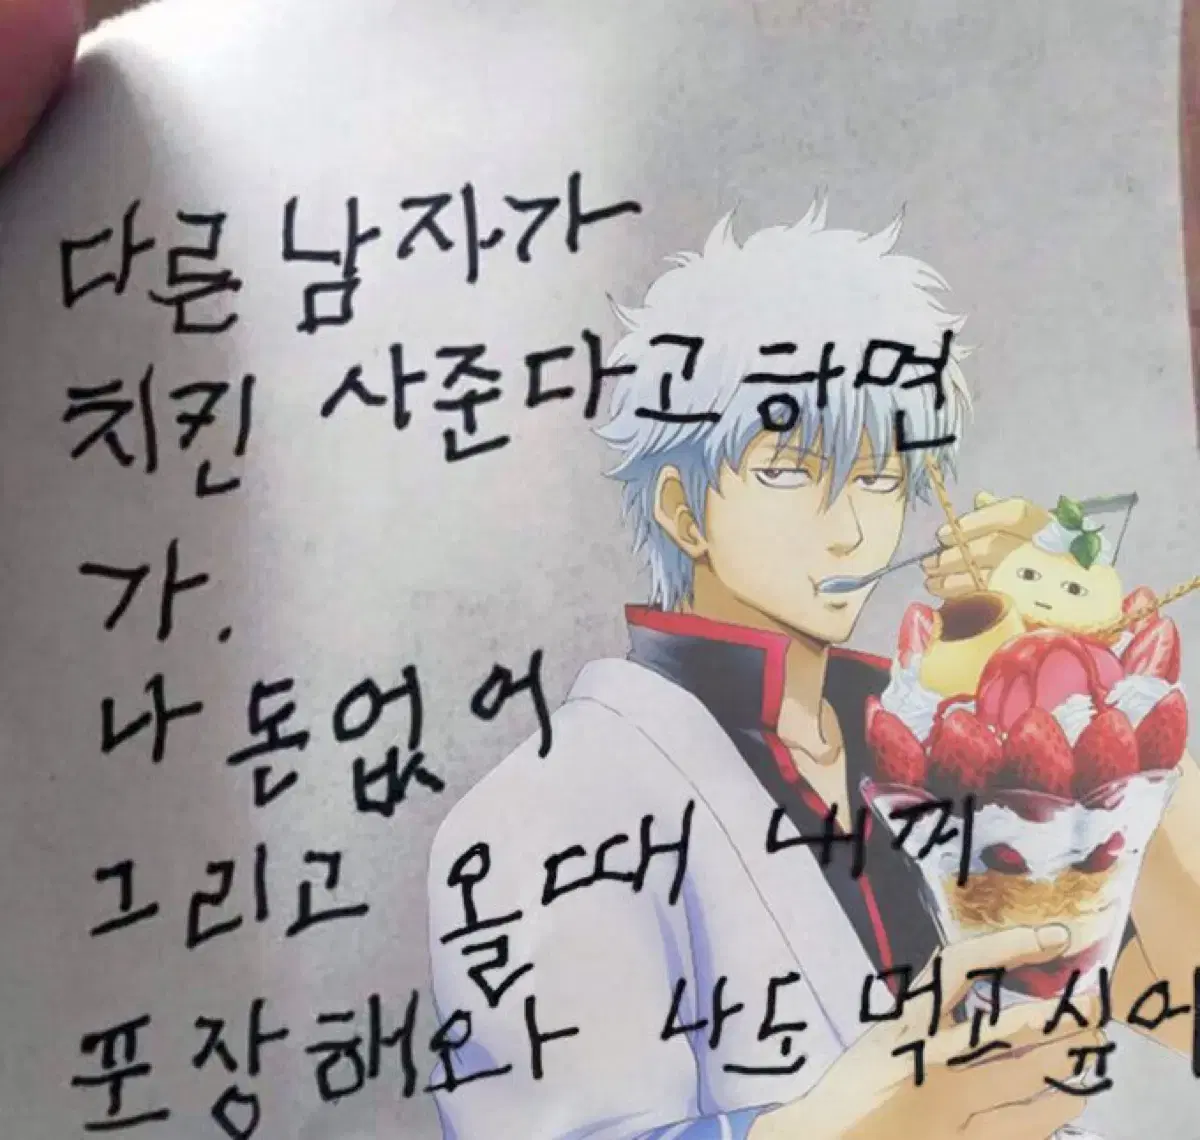 다른 남자가
치킨 사준다고하면
가.
나 돈없어
그리고 올때 내꺼
포장해와 나도 먹고싶어